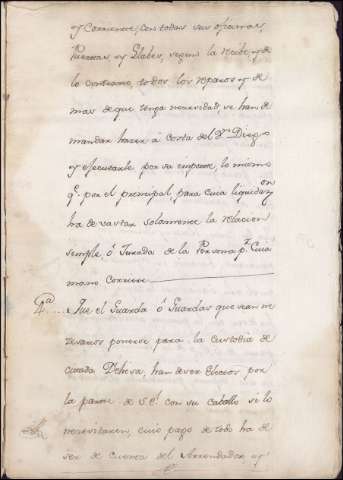 y Corriente, con todas sus oficinas,
Puertas y Llabes, segun la recibe, y de
lo contrario, todos los reparos y de
mas de que tenga necesidad, se han de
mandar hacer á costa del Dn Diego
y efecutarle por su importe, lo mismo
qe. por el principal, para cuia liquidazon
ha de vastar solamente la relacion
simple, ó Jurada de la Persona pr. Cuia
mano Corriere
4a.... Que el Guarda ó Guardas que sean ne
cesarios ponerse para la custodia de
citada Dehesa, han de ser electos por
la parte de S.E. con su caballo si lo
necesitaren, cuio pago de todo ha de
ser de cuenta del Arrendador, y